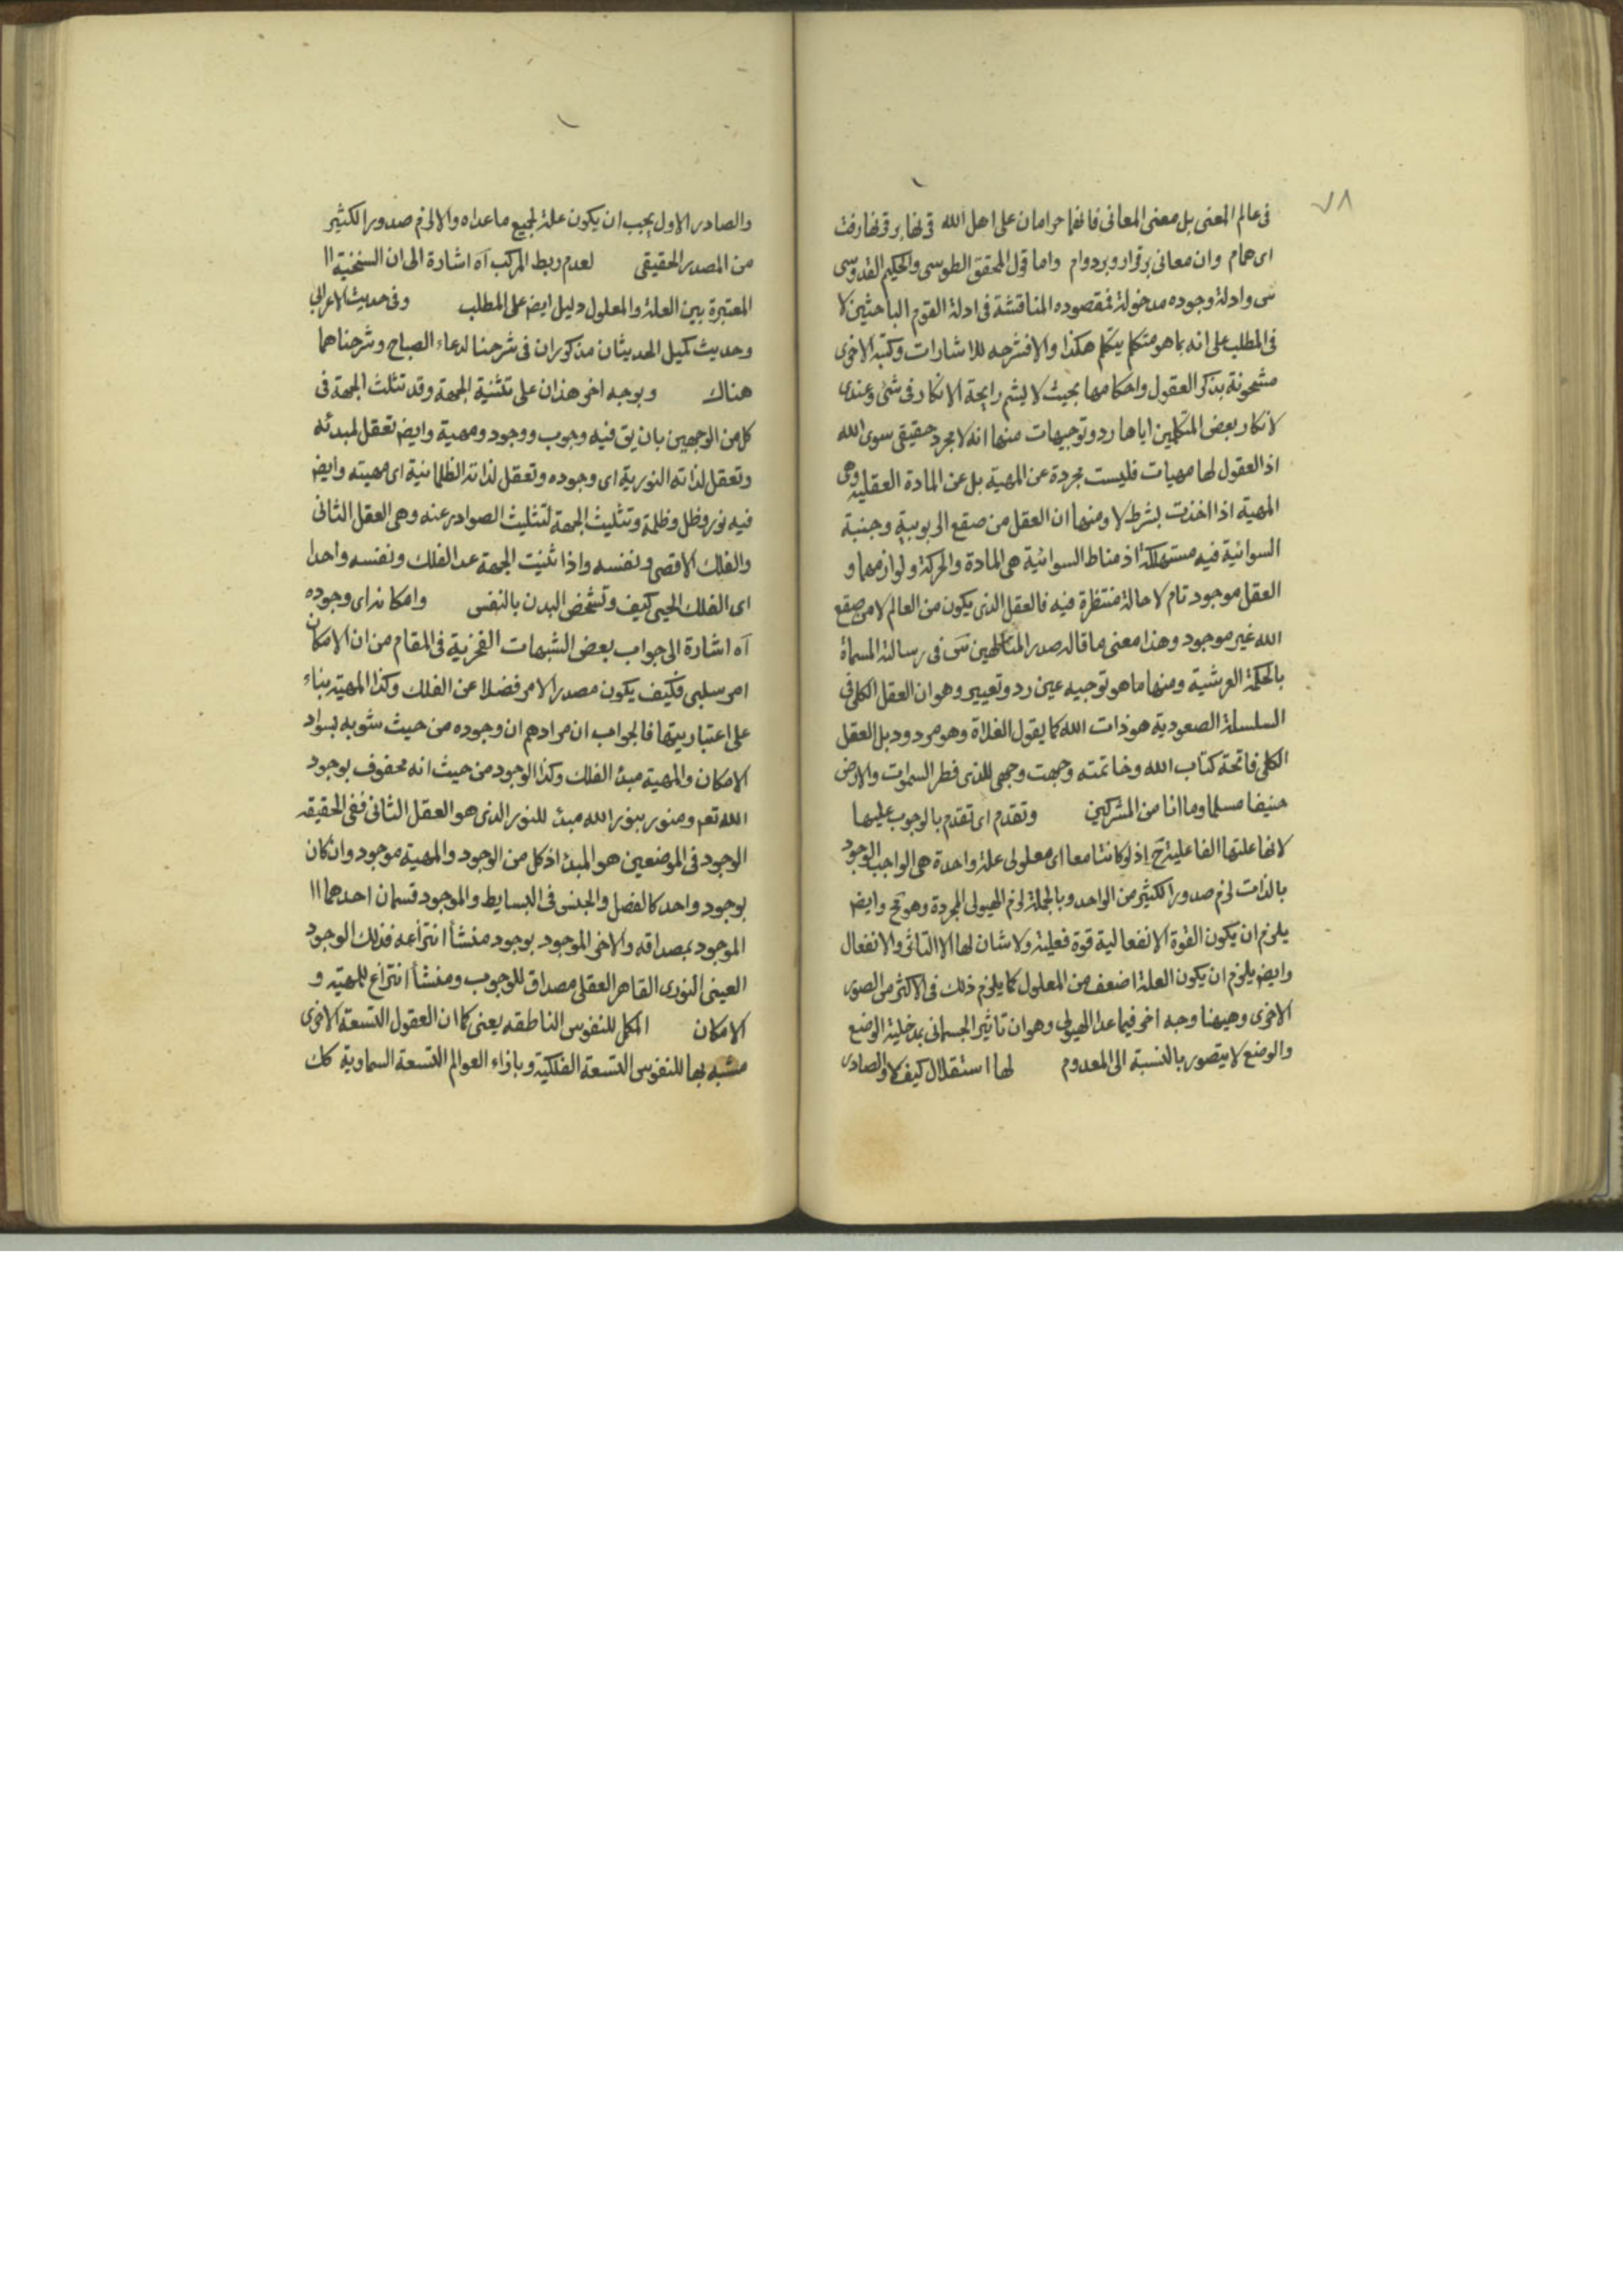 ٧٨
فى عالم المعنى بل معنى المعانى فانهما حرامان على اهل الله قرنها بر قرنها رفت
اى همام وان معانى برقرار وبردوام واما قول المحقق الطوسى والحكيم القدوسى
س وادلة وجوده مدخولة فمقصوده المناقشة فى ادلة القوم الباحثين لا
فى المطلب على انه بما هو متكلم يتكلم هكذا والا فشرحه للاشارات وكتبه الاخرى
مشحونة بذكر العقول واحكامها بحيث لا يشم رايحة الانكار فى شئ وعندى
لانكار بعض المتكلمين اياها رد وتوجيهات منها انه لا مجرد حقيقى سوى الله
اذ العقول لها مهيات فليست مجردة عن المهية بل عن المادة العقلية وهى
المهية اذا اخذت بشرط لا ومنها ان العقل من صقع الربوبية وجنبة
السوائية فيه مستهلكة اذ مناط السوائية هى المادة والحركة ولوازمهما و
العقل موجود تام لا حالة منتظرة فيه فالعقل الذى يكون من العالم لا من صقع
الله غير موجود وهذا معنى ما قاله صدر المتالهين س فى رسالته المسماة
بالحكمة العرشية ومنها ما هو توجيه عين رد وتعيير وهو ان العقل الكلى فى
السلسلة الصعودية هو ذات الله كما يقول الغلاة وهو مردود بل العقل
الكلى فاتحة كتاب الله وخاتمته وجهت وجهى للذى فطر السموات والارض
حنيفا مسلما وما انا من المشركين وتقدم اى تقدم بالوجوب عليها
لانها علتها الفاعلية ح اذ لو كانتا معا اى معلولى علة واحدة هى الواجب الوجود
بالذات لزم صدور الكثير من الواحد وبالجملة لزم الهيولى المجردة وهو مح وايض
يلزم ان يكون القوة الانفعالية قوة فعلية ولا شان لها الا التاثر والانفعال
وايض يلزم ان يكون العلة اضعف من المعلول كما يلزم ذلك فى الاكثر من الصور
الاخرى وهيهنا وجه اخر فيما عدا الهيولى وهو ان تاثير الجسمانى بمدخلية الوضع
والوضع لا يتصور بالنسبة الى المعدوم لها استقلال كيف لا والصادر
والصادر الاول يجب ان يكون علة لجميع ما عداه والا لزم صدور الكثير
من المصدر الحقيقى لعدم ربط المركب آه اشارة الى ان السنخية اا
المعتبرة بين العلة والمعلول دليل ايض على المطلب وفى حديث الاعرابى
وحديث كميل الحديثان مذكوران فى شرحنا لدعاء الصباح وشرحناهما
هناك وبوجه اخر هذان على تثنية الجهة وقد تثلث الجهة فى
كل من الوجهين بان يق فيه وجوب ووجود ومهية وايض تعقل لمبدئه
وتعقل لذاته النورية اى وجوده وتعقل لذاته الظلمانية اى مهيته وايض
فيه نور وظل وظلمة وتثليث الجهة لتثليث الصوادر عنه وهى العقل الثانى
والفلك الاقصى ونفسه واذا ثنيت الجهة عد الفلك ونفسه واحدا
اى الفلك الحيى كيف وتشخص البدن بالنفس وامكانه اى وجوده
آه اشارة الى جواب بعض الشبهات الفخرية فى المقام من ان الامكان
امر سلبى فكيف يكون مصدر الامر فضلا عن الفلك وكذا المهية بناء
على اعتباريتها فالجواب ان مرادهم ان وجوده من حيث شوبه بسواد
الامكان والمهية مبدء الفلك وكذا الوجود من حيث انه محفوف بوجود
الله تعم ومنور بنور الله مبدء للنور الذى هو العقل الثانى ففى الحقيقه
الوجود فى الموضعين هو المبدء اذ كل من الوجود والمهية موجود وان كان
بوجود واحد كالفصل والجنس فى البسايط والموجود قسمان احدهما اا
الموجود بمصداقه والاخر الموجود بوجود منشأ انتزاعه فذلك الوجود
العينى النورى القاهر العقلى مصداق للوجوب ومنشأ انتزاع للمهية و
الامكان المكمل للنفوس الناطقه يعنى كما ان العقول التسعة الاخرى
مشبه بها للنفوس التسعة الفلكية وبازاء العوالم التسعة السماوية كك